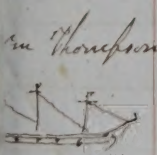 m Thompson